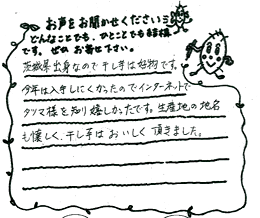 お声をお聞かせください
どんなことでも、ひとことでも結構
です。ぜひお寄せ下さい。
茨城県出身なので干し芋は好物です。
今年は入手しにくかったのでインターネットで
タツマ様を知り嬉しかったです。生産地の地名
も懐しく、干し芋はおいしく頂きました。